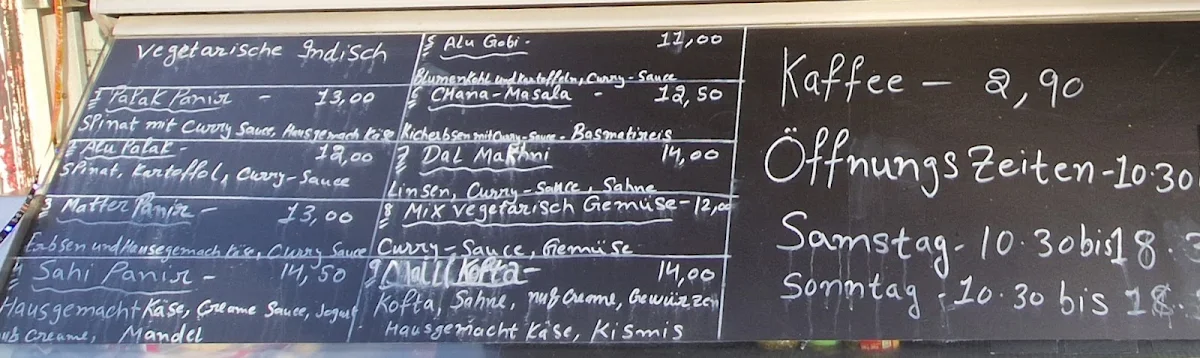 Vegetarische Indisch
1 Palak Panir - 13,00
Spinat mit Curry Sauce, Hausgemach Käse
2 Alu Palak - 12,00
Spinat, Kartoffol, Curry-Sauce
3 Matter Panir - 13,00
Erbsen und Hausegemach Käse, Curry Sauce
4 Sahi Panir - 14,50
Hausgemacht Käse, Creame Sauce, Jogurt
Creame, Mandel
5 Alu Gobi - 11,00
Blumenkohl und Kartoffeln, Curry-Sauce
6 CHana-Masala - 12,50
Kicherbsen mit Curry-Sauce - Basmatireis
7 Dal Makhni 14,00
Linsen, Curry-Sauce, Sahne
8 Mix vegetarisch Gemüse - 12,00
Curry-Sauce, Gemüse
9 Kofta - 14,00
Kofta, Sahne, nuß Creame, Gewürzen
Hausgemacht Käse, Kismis
Kaffee - 2,90
Öffnungs Zeiten - 10.30
Samstag - 10.30 bis 18.3
Sonntag - 10.30 bis 18